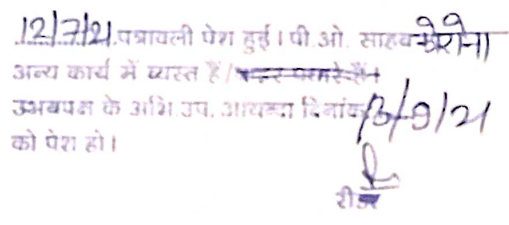 12/7/21 पत्रावली पेश हुई। पी.ओ. साहब कोरोना
अन्य कार्य में व्यस्त हैं।
उभयपक्ष के अभि. उप. आयन्दा दिनांक 13/9/21
को पेश हो।
रीडर